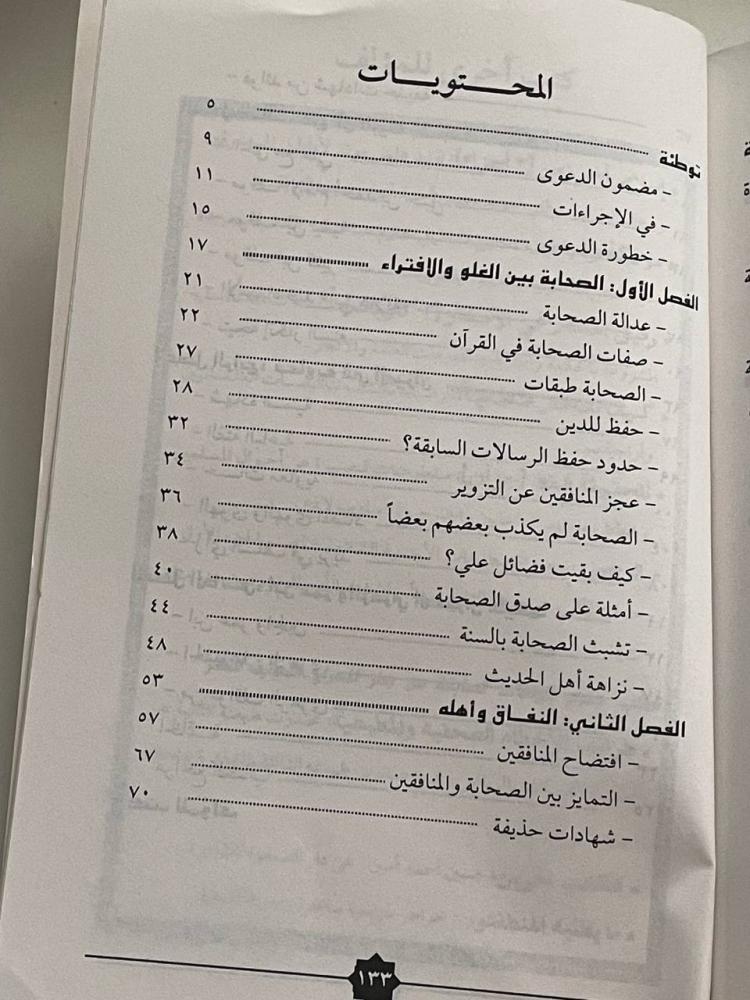 المحتويات
توطئة ٥
- مضمون الدعوى ٩
- في الإجراءات ١١
- خطورة الدعوى ١٥
الفصل الأول: الصحابة بين الغلو والافتراء ١٧
- عدالة الصحابة ٢١
- صفات الصحابة في القرآن ٢٢
- الصحابة طبقات ٢٧
- حفظ للدين ٢٨
- حدود حفظ الرسالات السابقة؟ ٣٢
- عجز المنافقين عن التزوير ٣٤
- الصحابة لم يكذب بعضهم بعضاً ٣٦
- كيف بقيت فضائل علي؟ ٣٨
- أمثلة على صدق الصحابة ٤٠
- تشبث الصحابة بالسنة ٤٤
- نزاهة أهل الحديث ٤٨
الفصل الثاني: النفاق وأهله ٥٣
- افتضاح المنافقين ٥٧
- التمايز بين الصحابة والمنافقين ٦٧
- شهادات حذيفة ٧٠
١٣٣